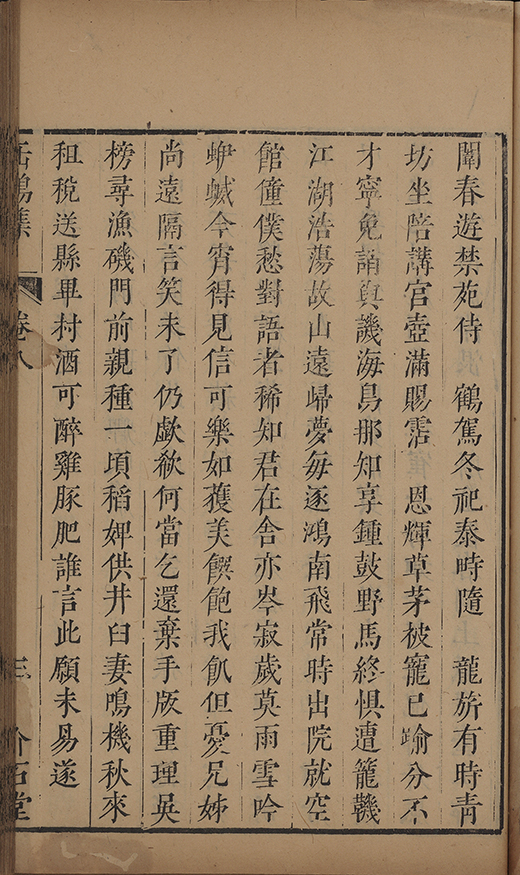 闈春遊禁苑侍 鶴駕冬祀泰時隨 龍旂有時青
坊坐陪講官壺滿賜霑 恩輝草茅被寵已踰分不
才寧免誦與譏海鳥那知享鍾鼓野馬終惧遭籠鞿
江湖浩蕩故山遠歸夢每逐鴻南飛常時出院就空
館僮僕愁對語者稀知君在舍亦岑寂歲莫雨雪吟
蛜蝛今宵得見信可樂如獲美饌飽我飢但憂兄姊
尚遠隔言笑未了仍歔欷何當乞還棄手版重理吳
榜尋漁磯門前親種一頃稻婢供井臼妻鳴機秋來
租稅送縣畢村酒可醉雞豚肥誰言此願未易遂
缶鳴集 卷八 三 介石堂